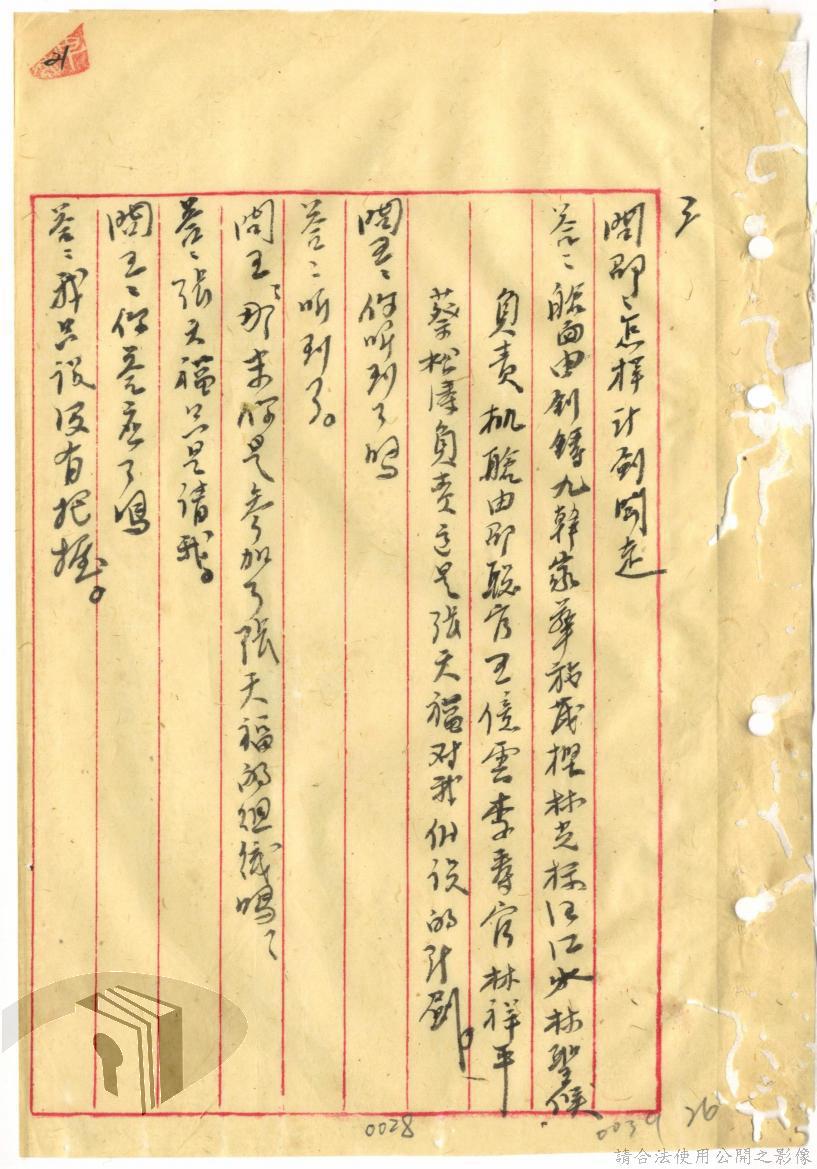 21
3
問邵：怎樣計劃開走
答：艙面由劉鏄九韓家華 茂樫林光標汪江水林聖俟
負责机艙由邵聪官王億雲李 官林祥平
蔡松 負责這是張天福对我 说的計劃
問 ：你听到了嗎
答：听到了。
問王：那末你是參加了張天福的组織嗎
答：張天福只是请我。
問王：你答应了嗎
答：我只说没有把握。
0028
0039
26
請合法使用公開之影像